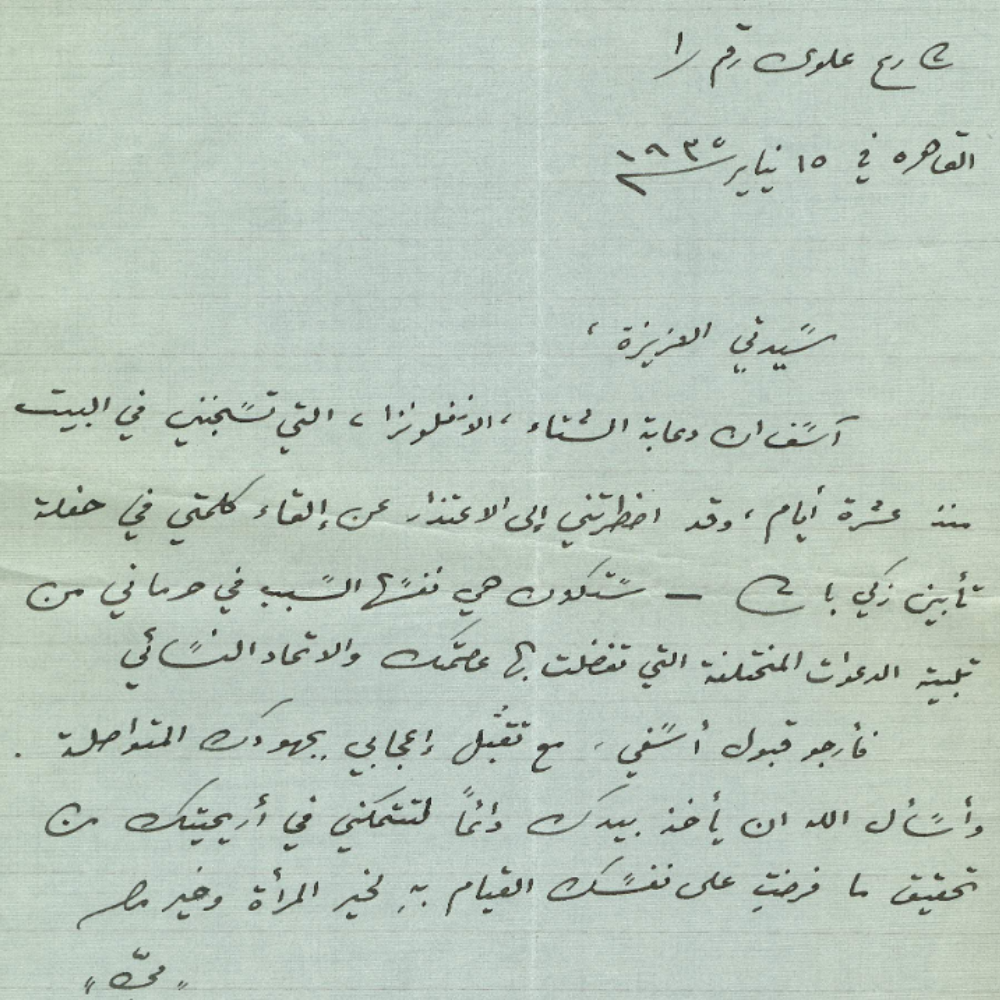 شارع علوى رقم ١
القاهره في ١٥ يناير ١٩٣٥
سيدتي العزيزة ،
آسف ان دعابة الشتاء ، الانفلونزا ، التي تسجنني في البيت
منذ عشرة أيام ، وقد اضطرتني إلى الاعتذار عن إلقاء كلمتي في حفلة
تأبين زكي باشا — ستكون هي نفسها السبب في حرماني من
تلبية الدعوات المختلفة التي تفضلت بها عصمتك والاتحاد النسائي
فأرجو قبول أسفي ، مع تقبُّل إعجابي بجهودك المتواصلة .
وأسأل الله ان يأخذ بيدك دائماً لتتمكني في أريحيتك من
تحقيق ما فرضتِ على نفسك القيام بهِ لخير المرأة وخير مصر
" ميّ "